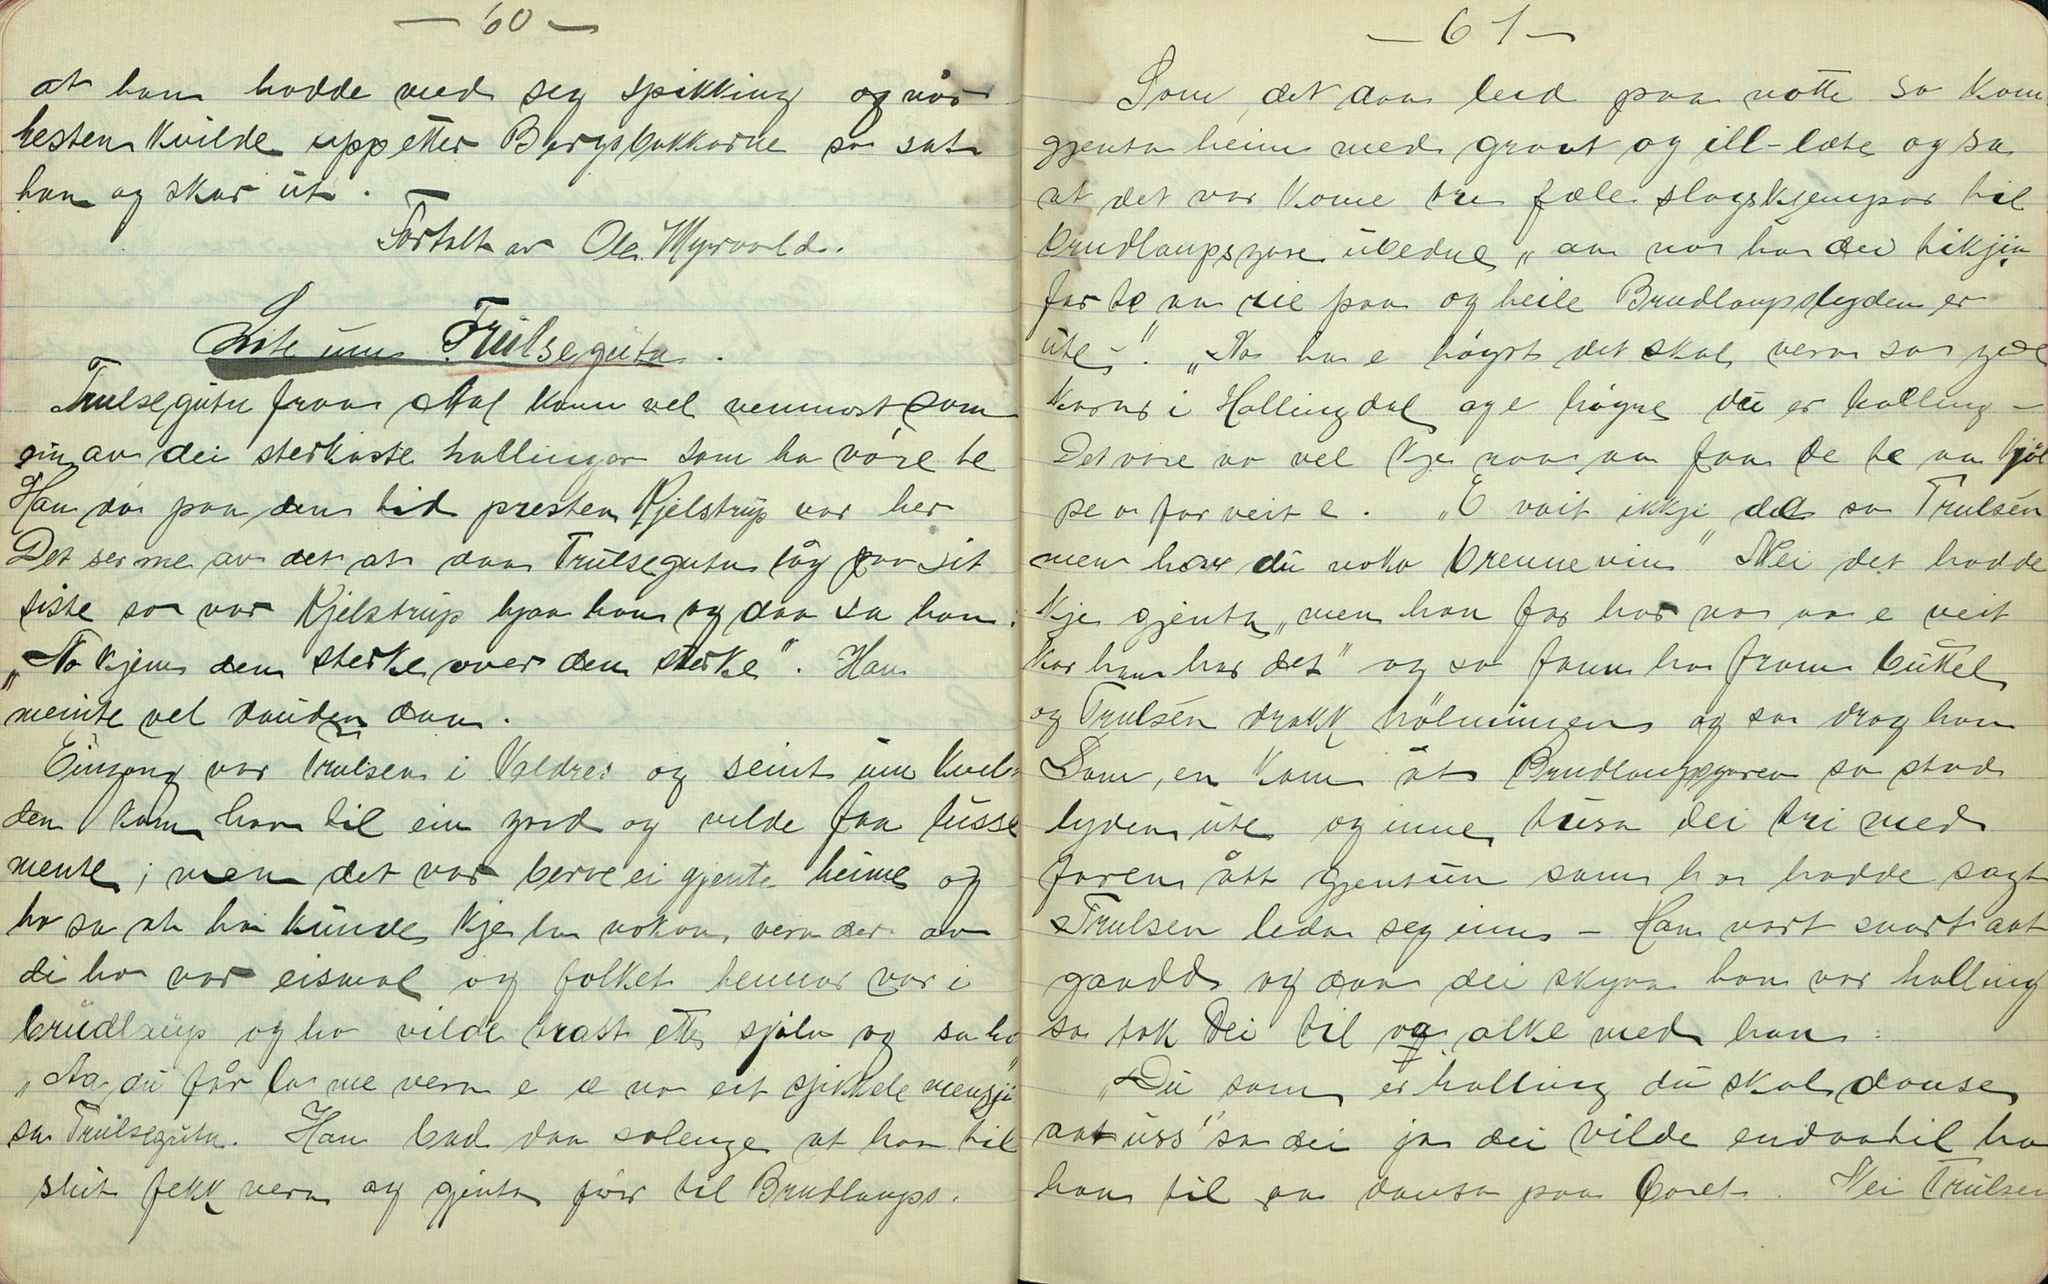 — 60 —
at han hadde med seg spikking og når
hesten kvilde upp etter Bergsbakkarne so sat
han og skar ut.
Fortalt av Ole Myrvold.
Lite um Trulseguten.
Trulseguten fraa Aal kann vel nemnast som
ein av dei sterkaste hallingar som ha vore te
Han då paa den tid presten Kjelstrup var her
Det ser me av det at daa Trulseguten låg paa sit
siste so var Kjelstrup hjaa han og daa sa han:
„No kjem den sterke over den sterke". Han
meinte vel dauden daa.
Eingong var Trulsen i Valdres og seint um kvel-
den kom han til ein gard og vilde faa husse
mente; men det var berre ei gjente heime og
ho sa at ho kunde kje ha nokon vera der av
di ho var eismal og folket hennar var i
brudlaup og ho vilde trast ette sjølv og sa ho
„Aa du får la me vera e e no eit sjikkele mensje
sa Trulseguten. Han bad daa solenge at han til
slut fekk vera og gjenta fór til Brudlaups.
— 61 —
Som det daa leid paa notte so kom
gjenta heim med graat og ill-læte og sa
at det var kome tre fæle slagskjempor til
brudlaupsgare ubedne „aa no ha dei tikjin
far te aa rie paa og heile Brudlaupslyden er
ute –". „No ha e høyrt det skal vera so gode
karar i Hallingdal og e høyre du er halling –
Det vore no vel kje noo aa faa de te aa hjøl
pe o far veit e. „E voit ikkji det sa Trulsen
men har du noko brennevin" Nei det hadde
kje gjenta, „men han far har no o e veit
kor han har det" og so fann ho fram buttel
og Trulsen drakk hølmingen og so drog han
Som en kom åt Brudlaupsgaren so stod
lyden ute og inne tusa dei tri med
faren ått gjentun som ho hadde sagt
Trulsen leda seg inn – Han vart snart aat
gaadd og daa dei skyna han var halling
so tok dei til og alke med han:
„Du som er halling du skal danse
aat uss" sa dei ja dei vilde endaatil ha
han til aa dansa paa boret. Nei Trulsen